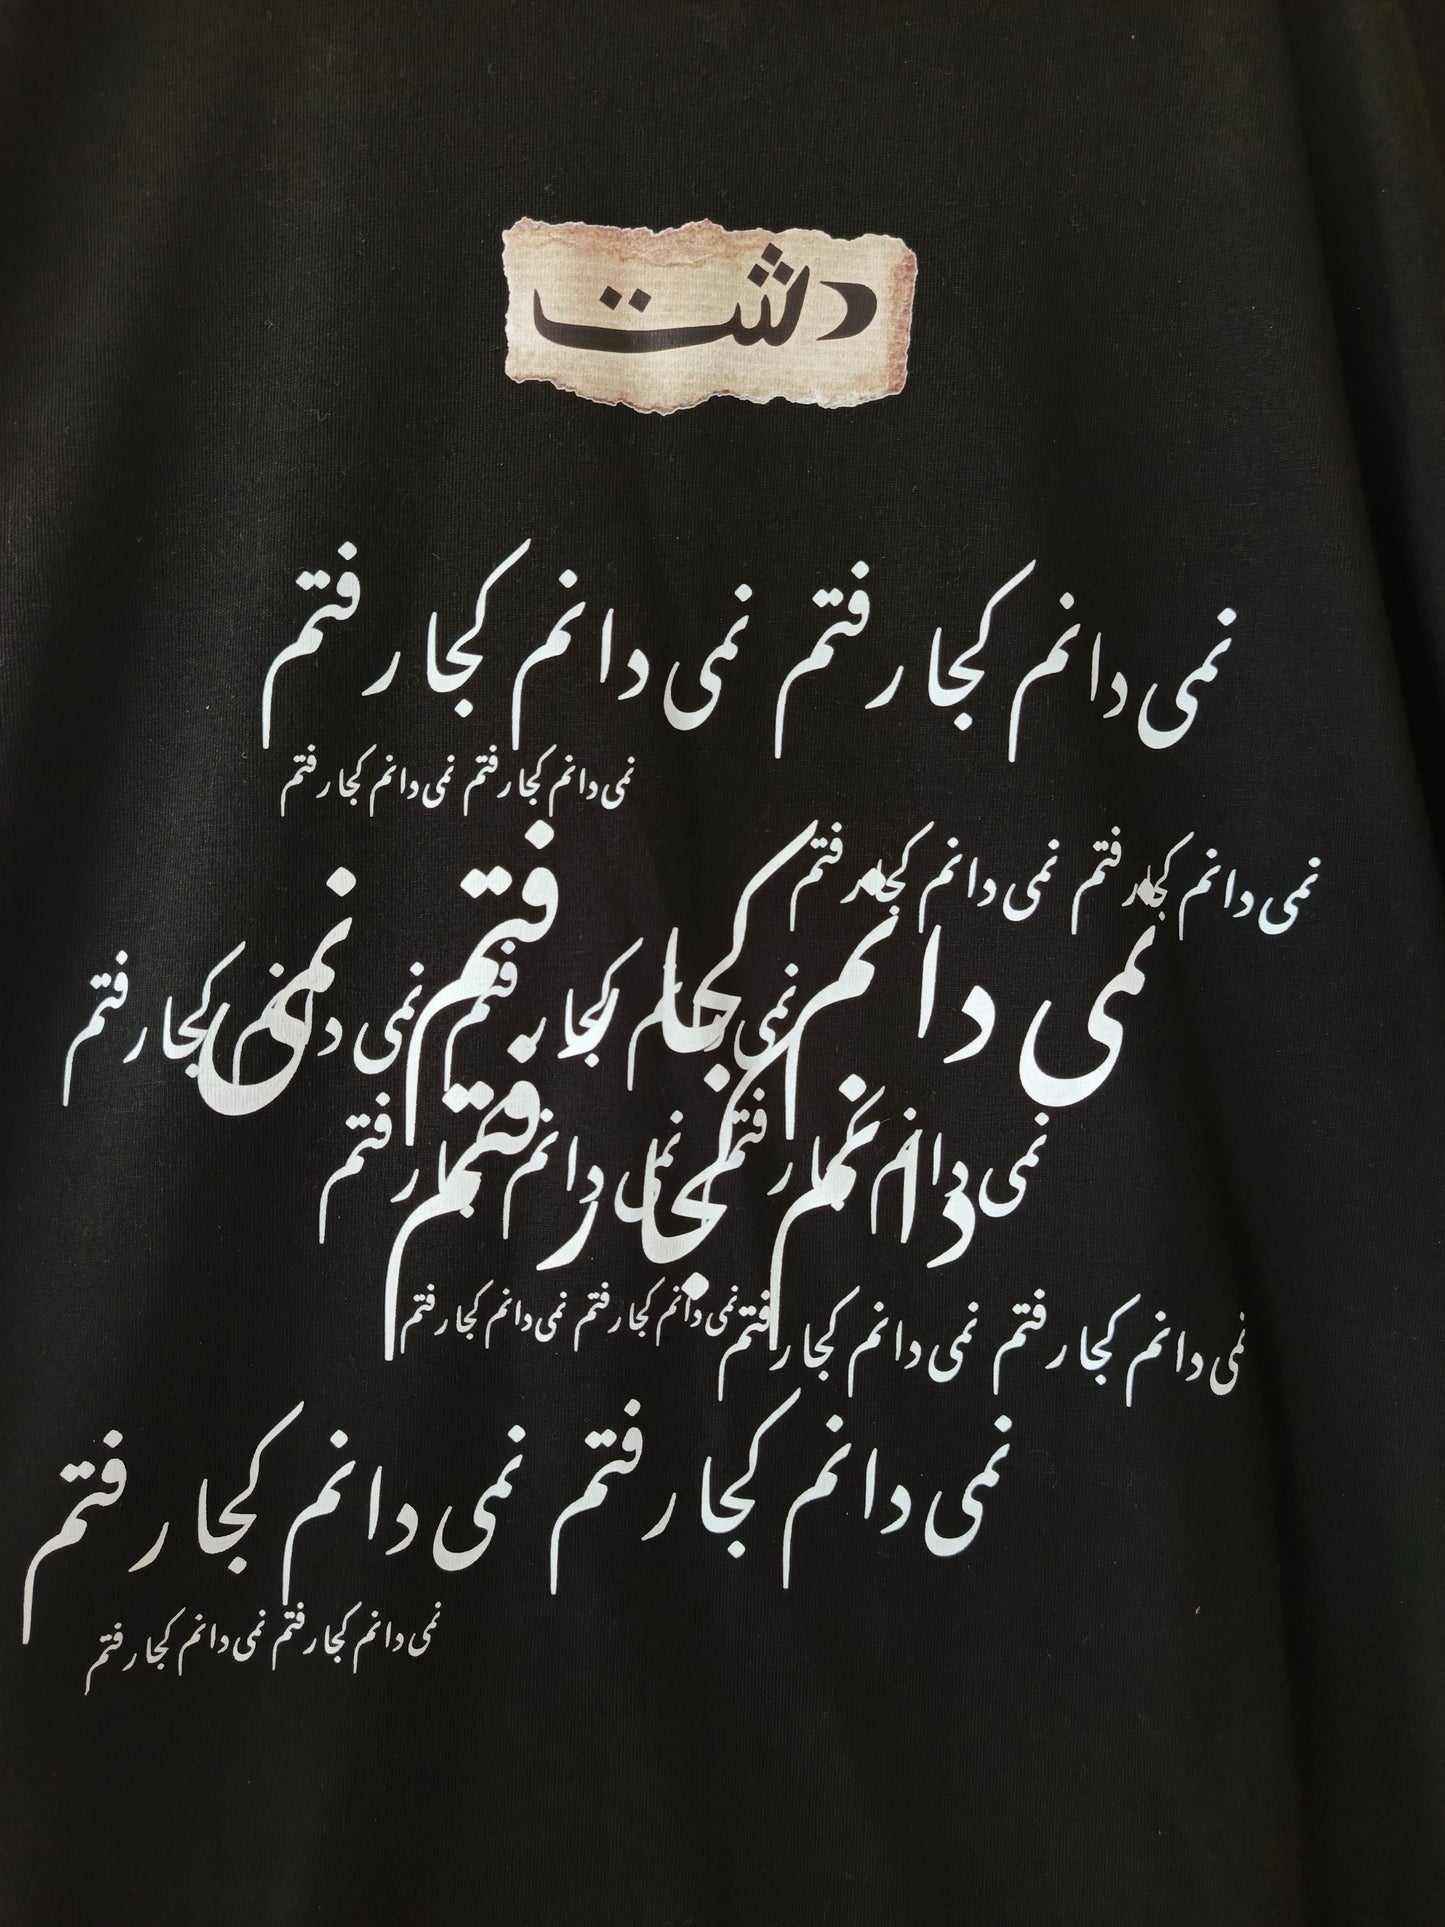 دشت
نمی دانم کجا رفتم نمی دانم کجا رفتم
نمی دانم کجا رفتم نمی دانم کجا رفتم
نمی دانم کجا رفتم نمی دانم کجا رفتم
نمی دانم کجا رفتم نمی
نمی دانم کجا رفتم نمی دانم کجا رفتم
نمی دانم کجا رفتم نمی دانم کجا رفتم
دانم کجا رفتم
نمی دانم کجا رفتم نمی دانم کجا رفتم
نمی دانم کجا رفتم نمی دانم کجا رفتم
نمی دانم کجا رفتم نمی دانم کجا رفتم
نمی دانم کجا رفتم نمی دانم کجا رفتم